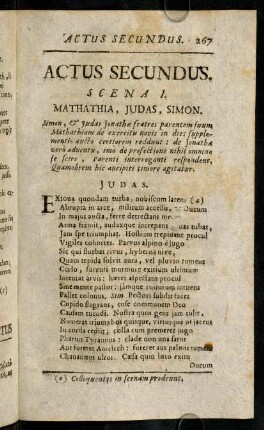 ACTUS SECUNDUS. 267
ACTUS SECUNDUS.
SCENA I.
MATHATHIA, JUDAS, SIMON.
Simon, & Judas Jonathæ fratres parentem suum
Mathathiam de exercitu novis in dies supple-
mentis aucto certiorem reddunt: de Jonatha
verò adventu, imò de profectione nihil omnino
se scire, parenti interroganti respondent,
Quamobrem hic ancipiti timore agitatur.
JUDAS.
quondam turba; nobiscum latens (a)
Abrupta in arce, militum accessu, Ducum
In majus aucta, ferre detrectans
Arma fremit, audaxque increpans tubæ,
Jam spe triumphat. Hostium trepidant procul
Vigiles cohortes. Parvus alpino è jugo
Sic qui fluebat rivus, hyberna nive,
Quam trepida solvit aura, vel pluvio rumens
Cœlo, furenti murmure exitium ultimum
Intentat arvis: hæret aspectans procul
Sine mente pastor; jamque ruiturum intuens
Pallet colonus. Sim Pectori subdit faces
Cupido flagrans, ense communem Deo
Causam tuendi. Nostra quos gens jam tulit,
Numerat triumphos quisque, virtuque
In corda redit; colla cum premeret jugo
Pharius Tyrannus: clade non una satur
Aut fureret Amalech: fureret aut palmis
Chananæus ultor. Cæsa quin læto exitu
Ducum
(a) Colloquentes in scenam prodeunt.
CTUS